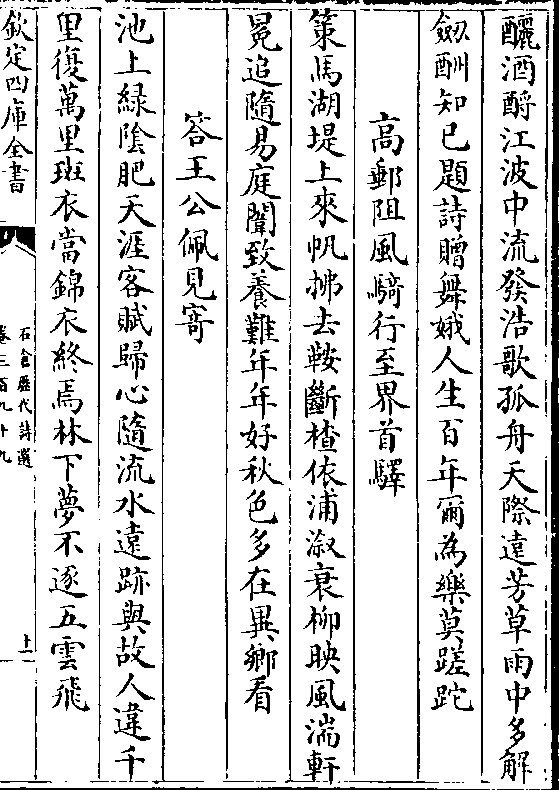 釃酒酹江波中流發浩歌孤舟天際遠芳草雨中多解
劔酬知已題詩贈舞娥人生百年爾為樂莫蹉跎
高郵阻風騎行至界首驛
策馬湖堤上來帆拂去鞍斷楂依浦溆衰柳映風湍軒
冕追隨易庭闈致養難年年好秋色多在異鄉看
答王公佩見寄
池上緑陰肥天涯客賦歸心隨流水遠跡與故人違千
里復萬里斑衣當錦衣終焉林下夢不逐五雲飛
欽定四庫全書
石倉歷代詩選
卷三百九十九
十一